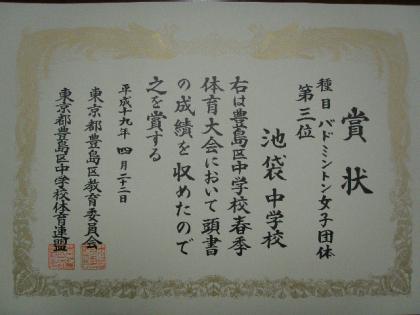 賞状
種目 バドミントン女子団体
第三位
池袋中学校
右は豊島区中学校春季
体育大会において頭書
の成績を収めたので
之を賞する
平成十九年 四月二十二日
東京都豊島区教育委員会
東京都豊島区中学校体育連盟